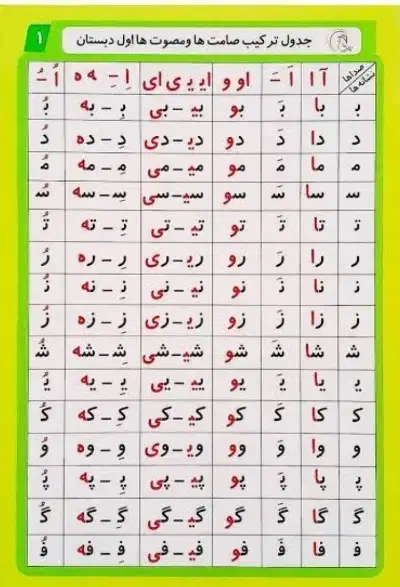 جدول ترکیب صامت ها ومصوت ها اول دبستان ۱
صداها نشانه ها آ ا اَ ـَ او و ایـ یـ ی ای اِ ـِ ـه ه اُ ـُ
بـ با بَ بو بیـ – بی بِـ – به بُ
د دا دَ دو دیـ – دی دِ – ده دُ
مـ ما مَ مو میـ – می مِـ – مه مُ
سـ سا سَـ سو سیـ – سی سِـ – سه سُـ
تـ تا تَـ تو تیـ – تی تِـ – ته تُـ
ر را رَ رو ریـ – ری رِ – ره رُ
نـ نا نَـ نو نیـ – نی نِـ – نه نُـ
ز زا زَ زو زیـ – زی زِ – زه زُ
شـ شا شَـ شو شیـ – شی شِـ – شه شُـ
یـ یا یَـ یو ییـ – یی یِـ – یه یُـ
کـ کا کَـ کو کیـ – کی کِـ – که کُـ
و وا وَ وو ویـ – وی وِ – وه وُ
پـ پا پَـ پو پیـ – پی پِـ – په پُـ
گـ گا گَـ گو گیـ – گی گِـ – گه گُـ
فـ فا فَـ فو فیـ – فی فِـ – فه فُـ